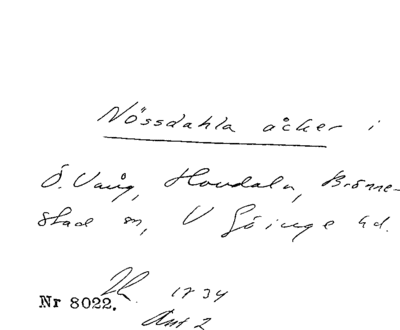 Nössdahla åcker i
Ö. Vång, Hovdala, Brönne-
stad sn, V Göinge hd.
1734
Nr 8022.
Akt 2